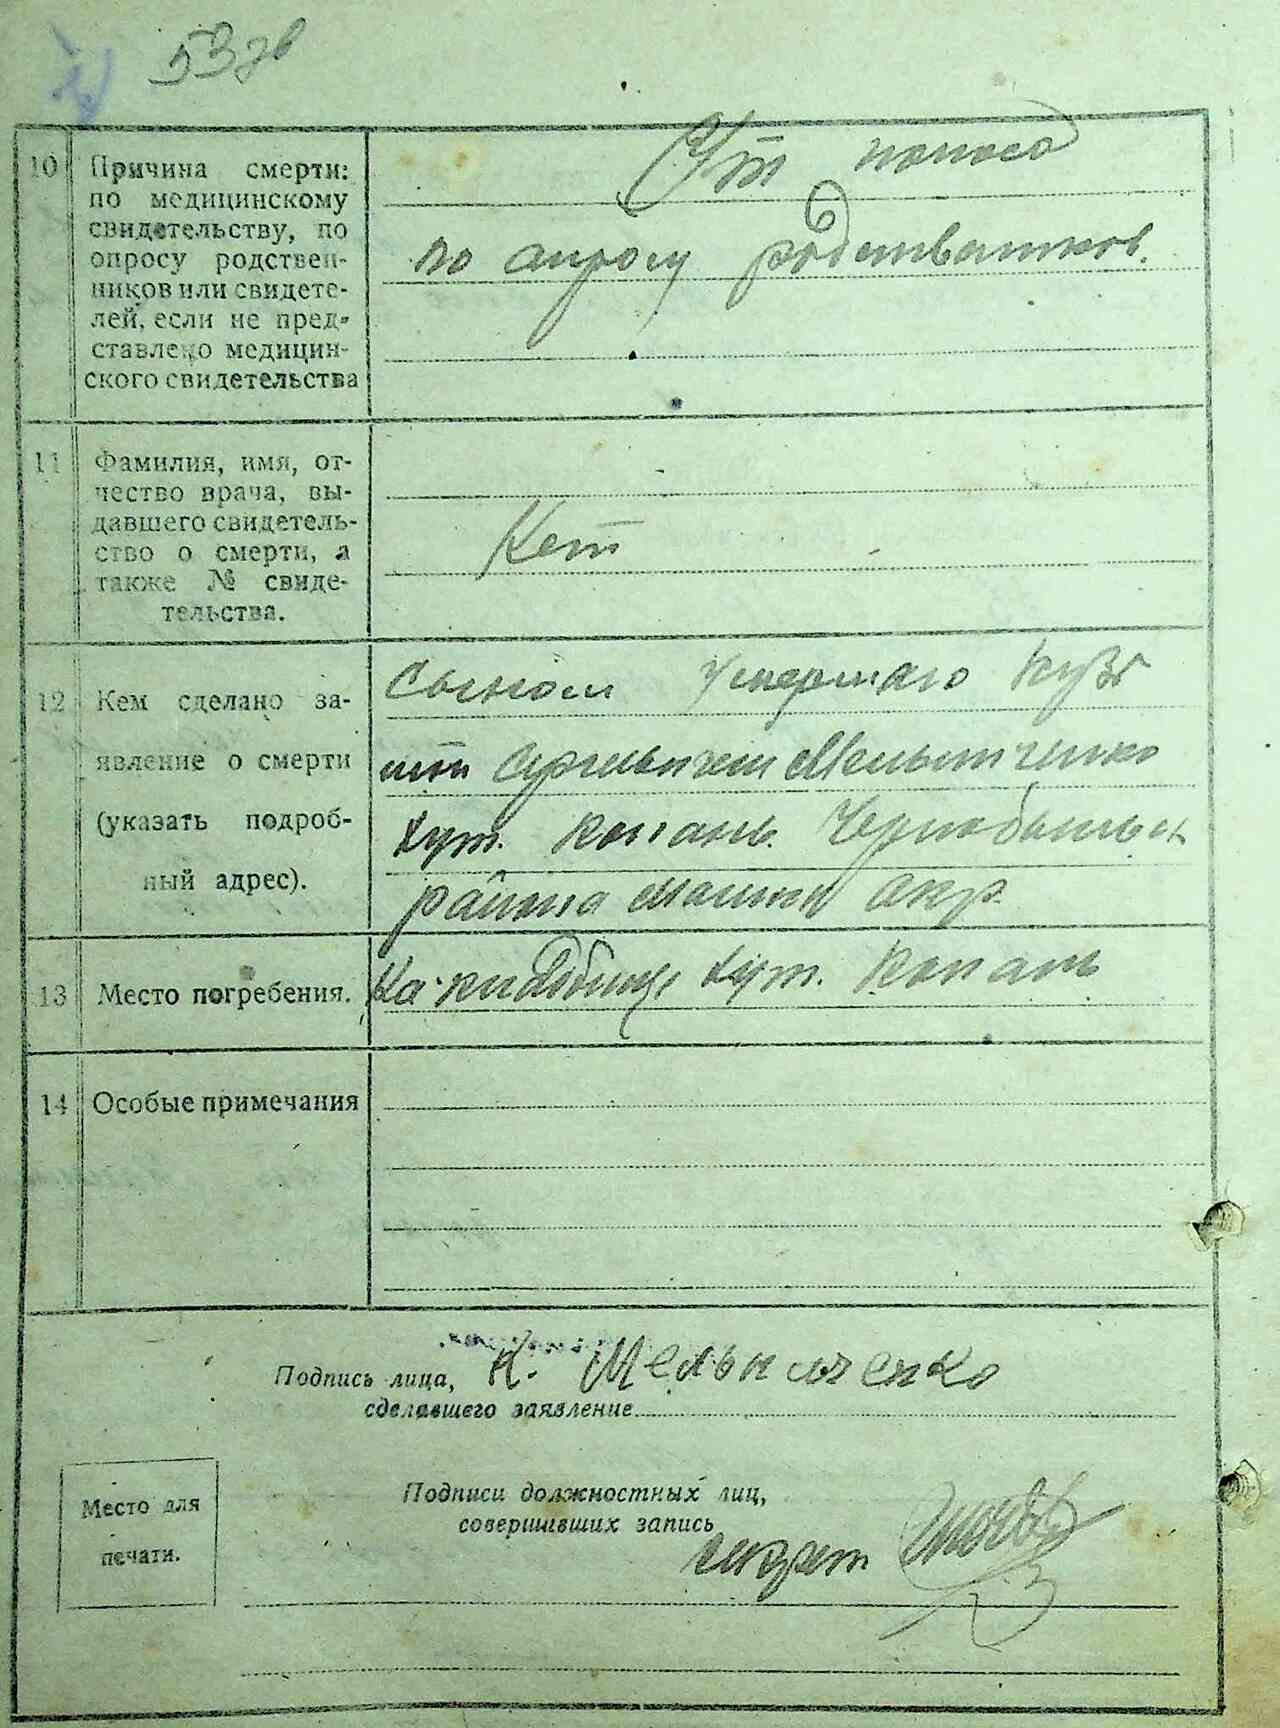 53
10 Причина смерти:
по медицинскому
свидетельству, по
опросу родствен-
ников или свидете-
лей, если не пред-
ставлено медицин-
ского свидетельства
От поноса
по апросу родственников.
11 Фамилия, имя, от-
чество врача, вы-
давшего свидетель-
ство о смерти, а
также № свиде-
тельства.
Нет
12 Кем сделано за-
явление о смерти
(указать подроб-
ный адрес).
Сыном умершаго Кузь
Мельниченко
хут. Копань.
района окр.
13 Место погребения.
На кладбище хут. Копань
14 Особые примечания
Подпись лица, К. Мельниченко
сделавшего заявление
Место для
печати.
Подписи должностных лиц,
совершивших запись
секрет